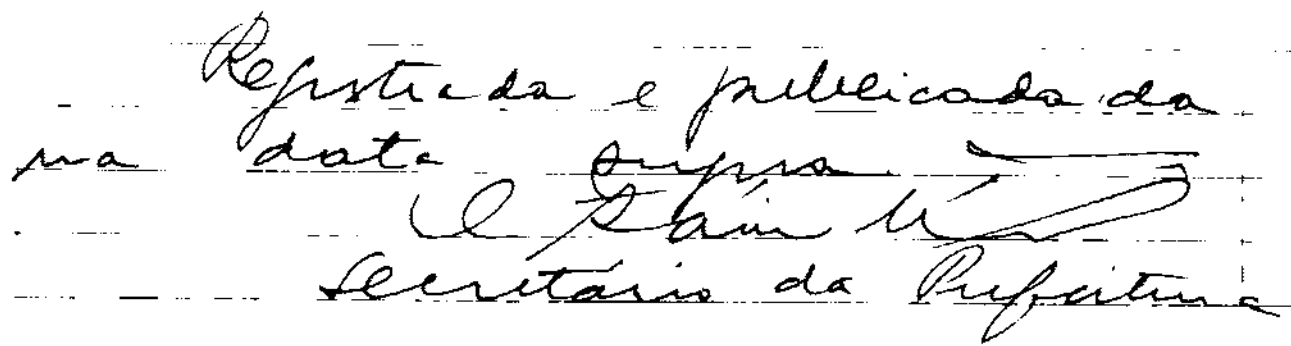 Registrada e publicada da
na data supra.
Secretário da Prefeitura